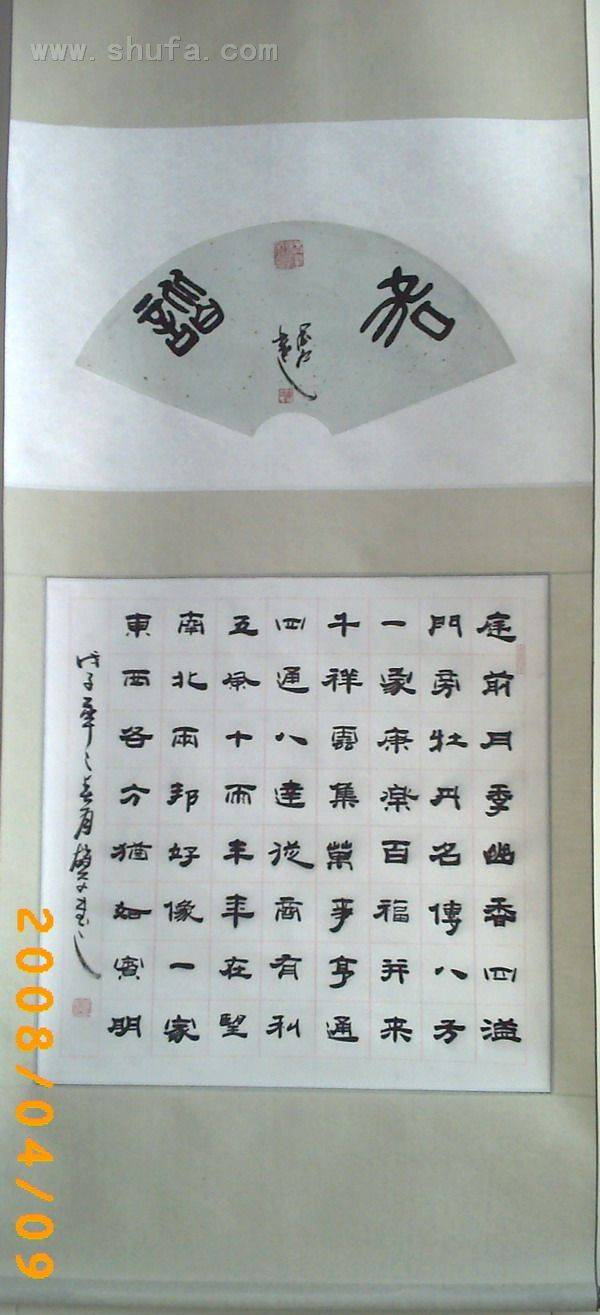 www.shufa.com
庭前月季幽香四溢
門旁牡丹名傳八方
一家康樂百福并来
千祥雲集萬事亨通
四通八達從商有利
五風十雨丰年在望
南北兩邦好像一家
東西各方猶如賓朋
戊子年之春月
2008/04/09